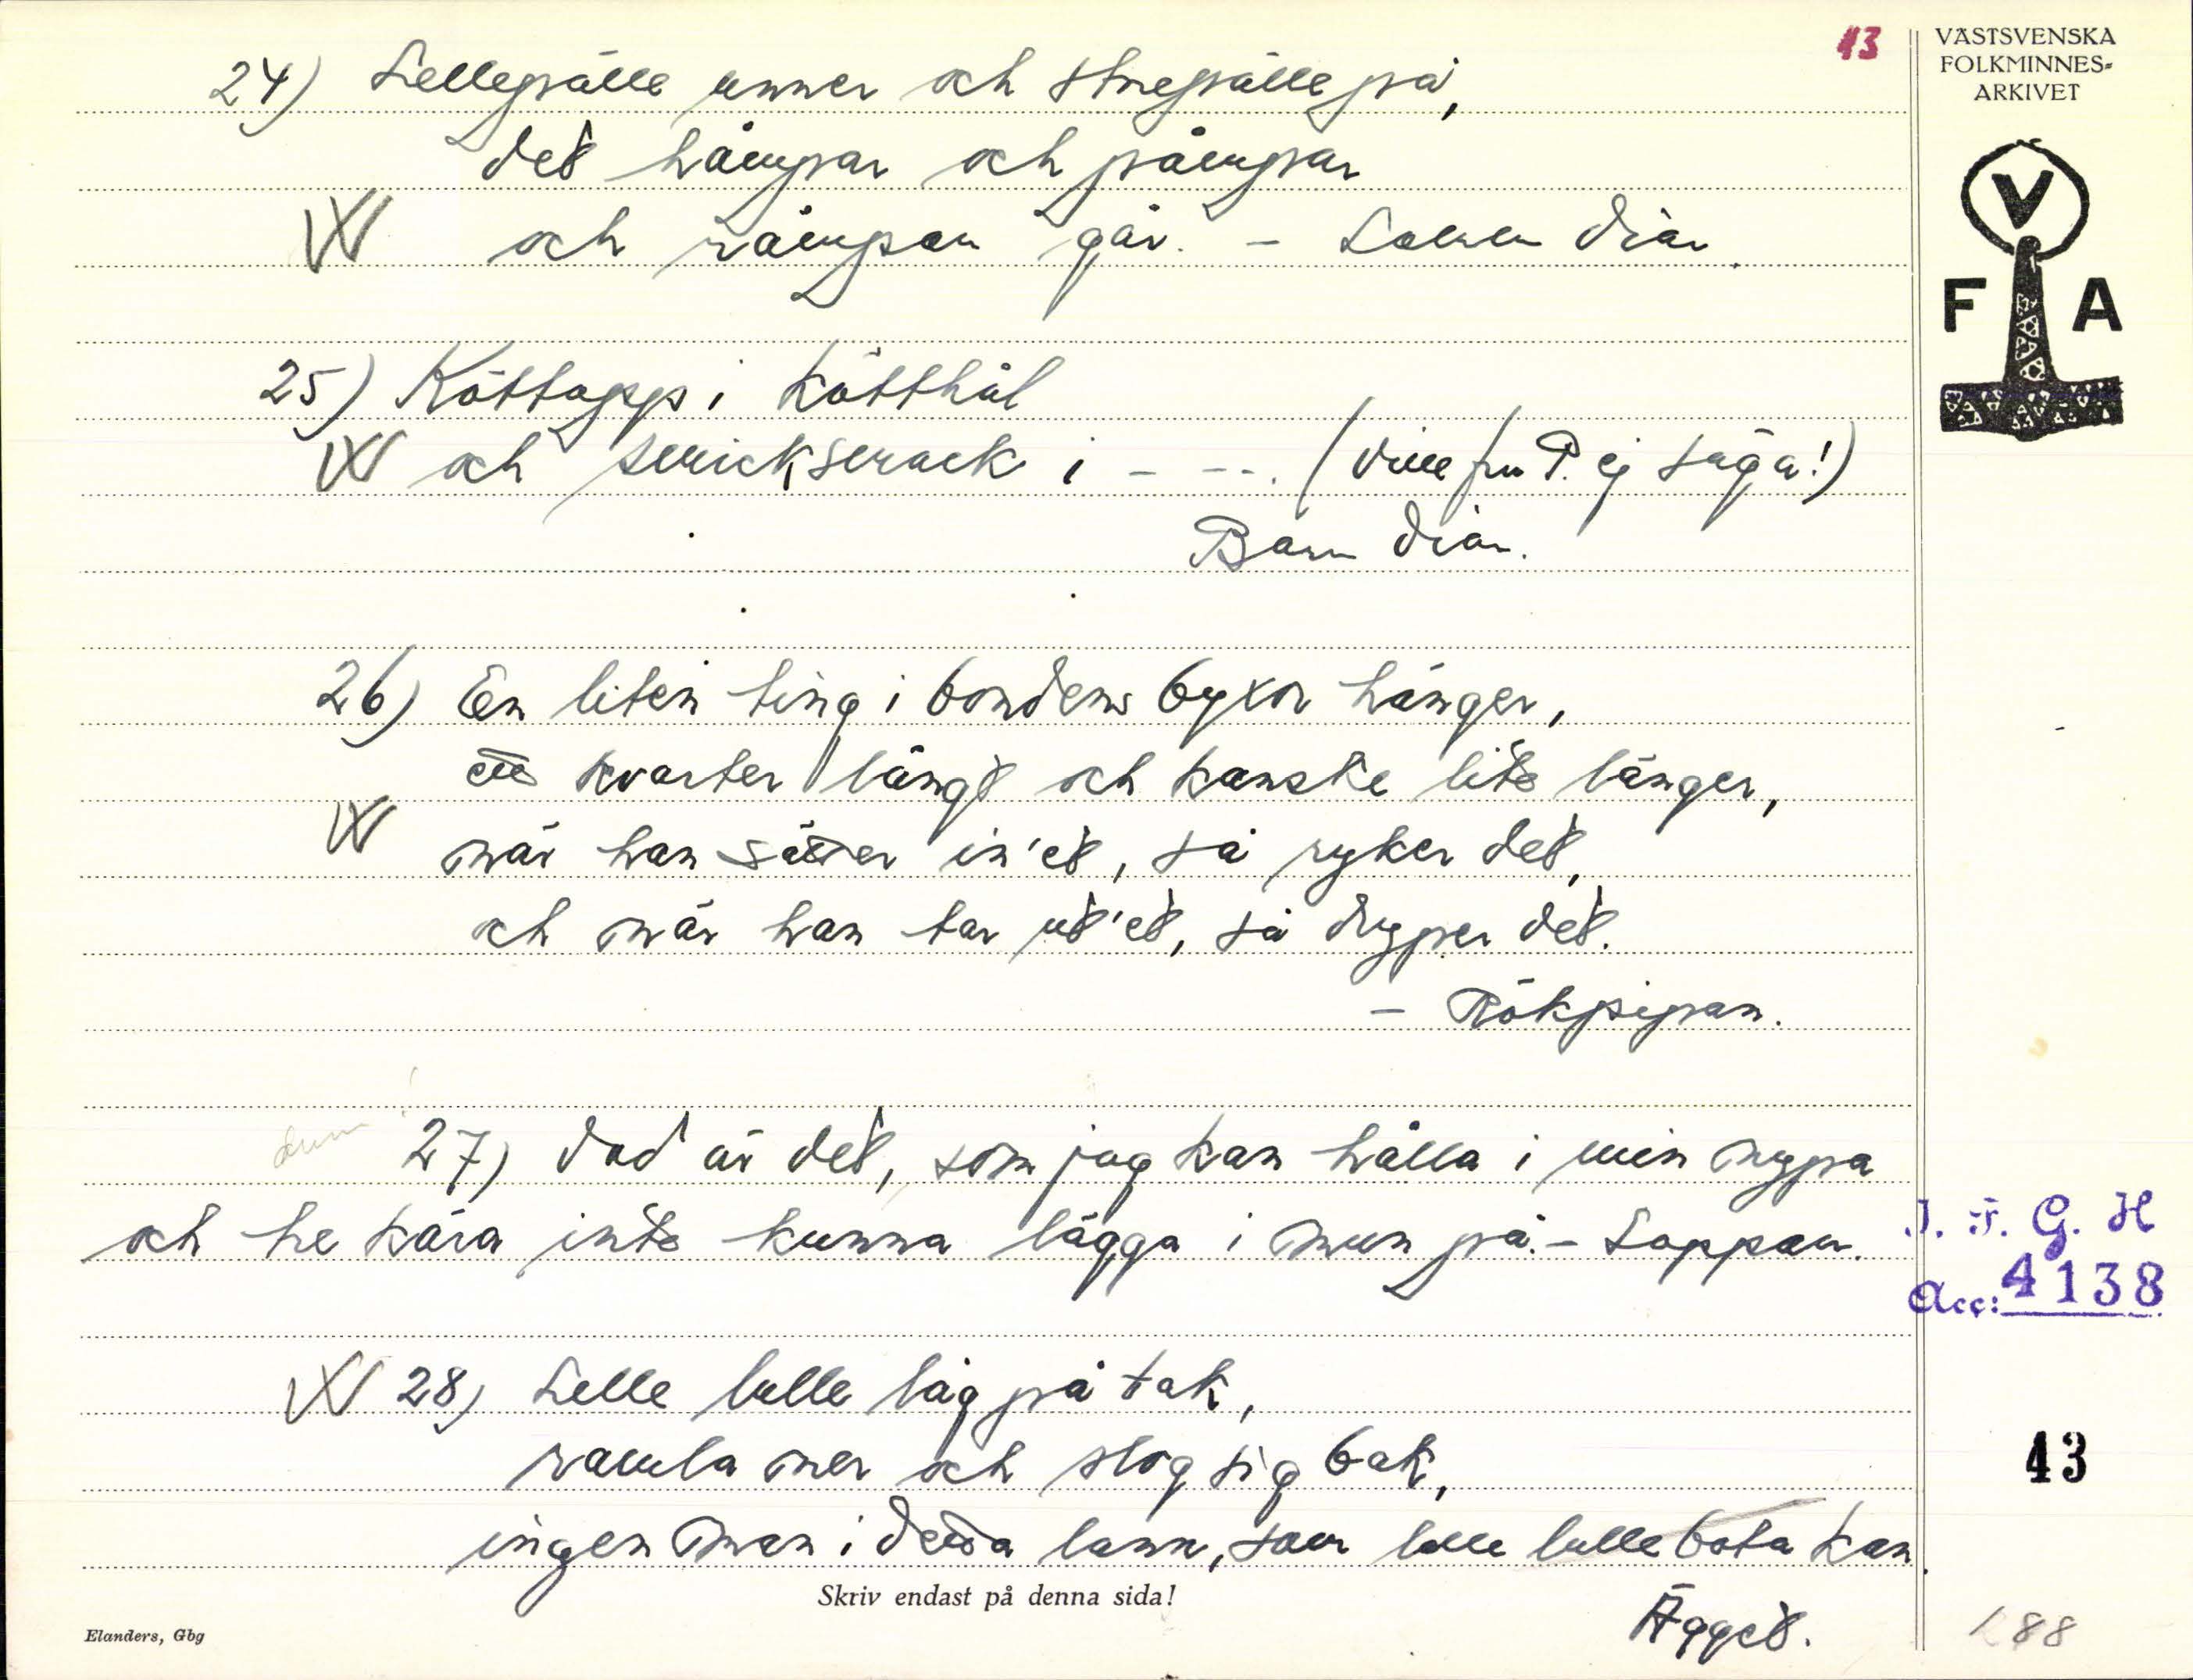 43
VÄSTSVENSKA
FOLKMINNES-
ARKIVET
V
F A
24) Lellepälle unner och storepälle på,
det hämpar och pämpar
och rämpan går. - Lamm diar.
25) Köttapp i kötthål
och smicksmack i - --. (ville fru P. ej säga!)
Barn diar.
26) En liten ting i bondens byxor hänger,
ett kvarter långt och kanske lite länger,
när han sätter in'et, så ryker det,
och när han tar ut'et, så dryper det.
- Rökpipan.
27) Vad är det, som jag kan hålla i min nypa
och tre kära inte kunna lägga i mun på. - Loppan.
J. F. G. H
Acc: 4138
28) Lelle lulle låg på tak,
ramla ner och slog sig bak,
ingen man i detta lann, som lelle lulle bota kan.
Ägget.
43
Skriv endast på denna sida!
Elanders, Gbg
188